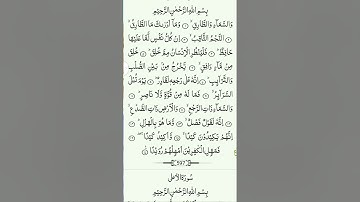 بِسْمِ اللّٰهِ الرَّحْمٰنِ الرَّحِيْمِ
وَالسَّمَآءِ وَالطَّارِقِ ۙ﴿۱﴾ وَمَاۤ اَدْرٰىكَ مَا الطَّارِقُ ۙ﴿۲﴾
النَّجْمُ الثَّاقِبُ ۙ﴿۳﴾ اِنْ كُلُّ نَفْسٍ لَّمَّا عَلَيْهَا
حَافِظٌ ؕ﴿۴﴾ فَلْيَنْظُرِ الْاِنْسَانُ مِمَّ خُلِقَ ؕ﴿۵﴾ خُلِقَ
مِنْ مَّآءٍ دَافِقٍ ۙ﴿۶﴾ يَّخْرُجُ مِنْۢ بَيْنِ الصُّلْبِ
وَالتَّرَآئِبِ ؕ﴿۷﴾ اِنَّهٗ عَلٰى رَجْعِهٖ لَقَادِرٌ ؕ﴿۸﴾ يَوْمَ تُبْلَى
السَّرَآئِرُ ۙ﴿۹﴾ فَمَا لَهٗ مِنْ قُوَّةٍ وَّلَا نَاصِرٍ ؕ﴿۱۰﴾
وَالسَّمَآءِ ذَاتِ الرَّجْعِ ۙ﴿۱۱﴾ وَالْاَرْضِ ذَاتِ الصَّدْعِ ۙ﴿۱۲﴾
اِنَّهٗ لَقَوْلٌ فَصْلٌ ۙ﴿۱۳﴾ وَّمَا هُوَ بِالْهَزْلِ ؕ﴿۱۴﴾
اِنَّهُمْ يَكِيْدُوْنَ كَيْدًا ۙ﴿۱۵﴾ وَّاَكِيْدُ كَيْدًا ۚۖ﴿۱۶﴾
فَمَهِّلِ الْكٰفِرِيْنَ اَمْهِلْهُمْ رُوَيْدًا ﴿۱۷﴾
597
سُوْرَةُ الْاَعْلٰى
بِسْمِ اللّٰهِ الرَّحْمٰنِ الرَّحِيْمِ